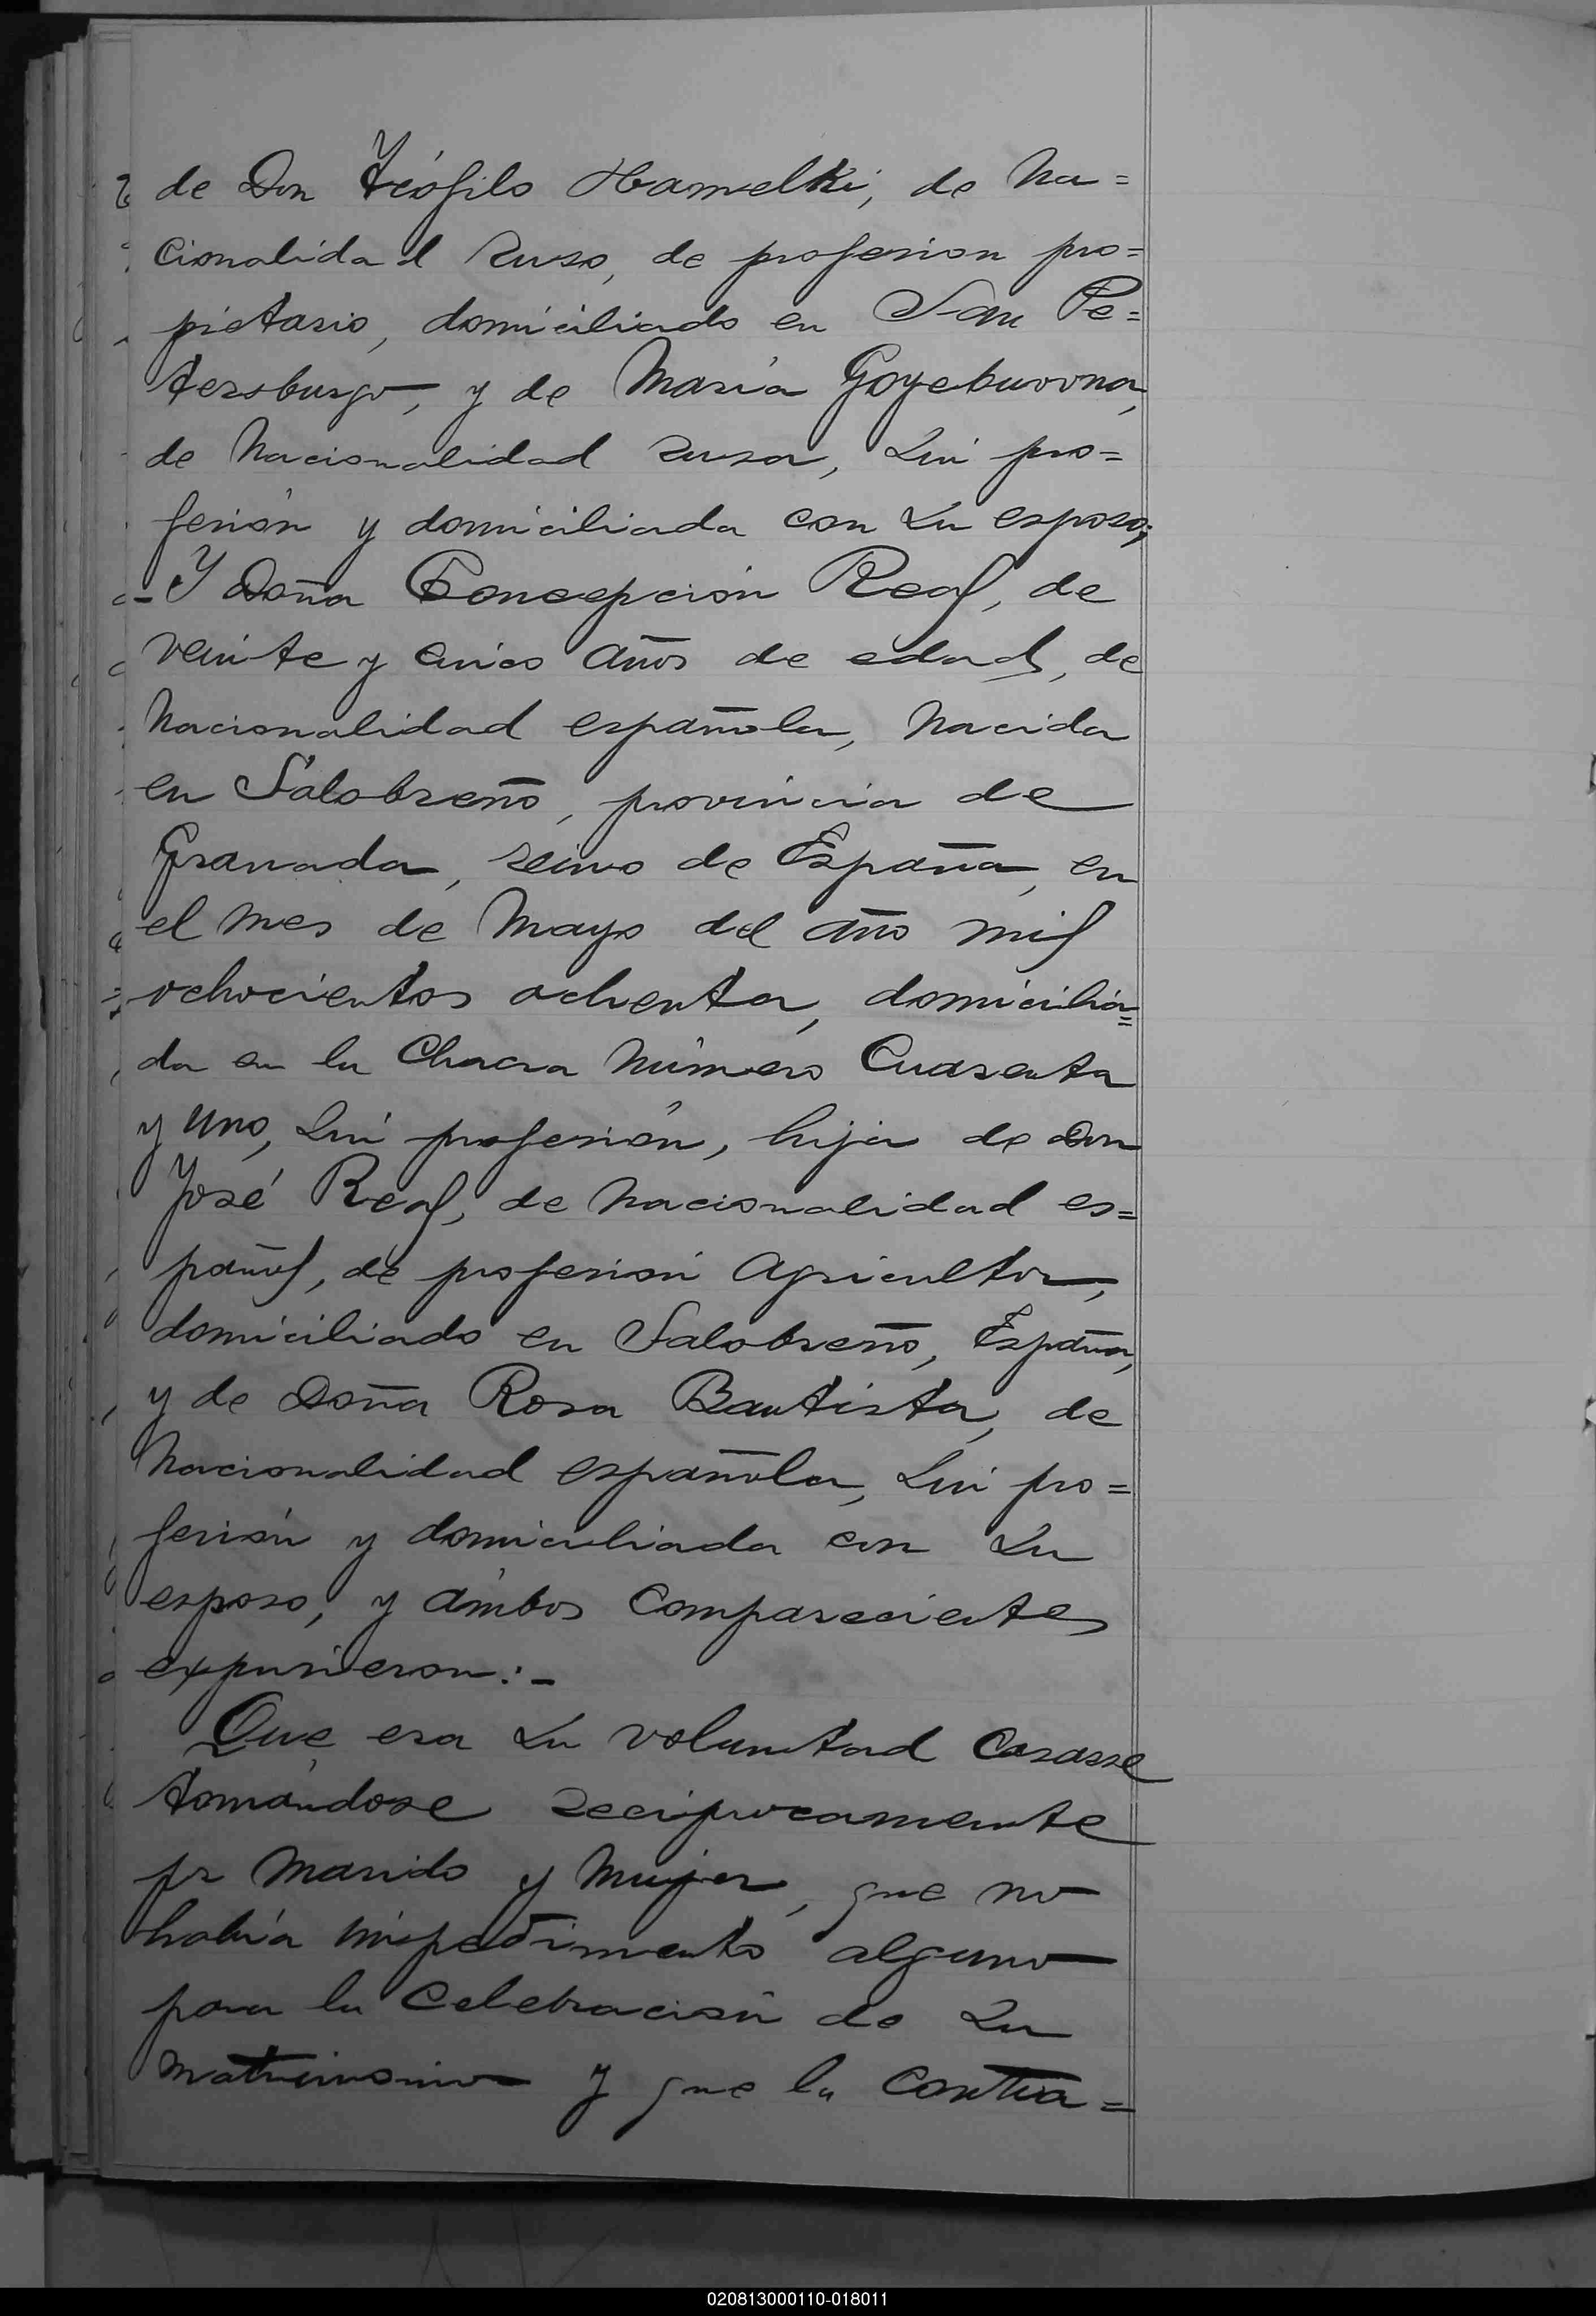 de Don Teófilo Hamelki, de na=
cionalidad ruso, de profesion pro=
pietario, domiciliado en San Pe=
tersburgo, y de María Goyeburovna,
de nacionalidad rusa, sin pro=
fesión y domiciliada con su esposo;
- Y Doña Concepción Real, de
veinte y cinco años de edad, de
nacionalidad española, nacida
en Salobreño, provincia de
Granada, reino de España, en
el mes de Mayo del año mil
ochocientos ochenta, domicilia=
da en la Chacra número Cuarenta
y uno, sin profesión, hija de Don
José Real, de nacionalidad es=
pañol, de profesión agricultor,
domiciliado en Salobreño, España,
y de Doña Rosa Bautista, de
nacionalidad española, sin pro=
fesión y domiciliada con su
esposo, y ambos comparecientes
expusieron:-
Que era su voluntad casarse
tomándose reciprocamente
pr marido y mujer, que no
había impedimento alguno
para la celebración de su
matrimonio y que la contra=
020813000110-018011